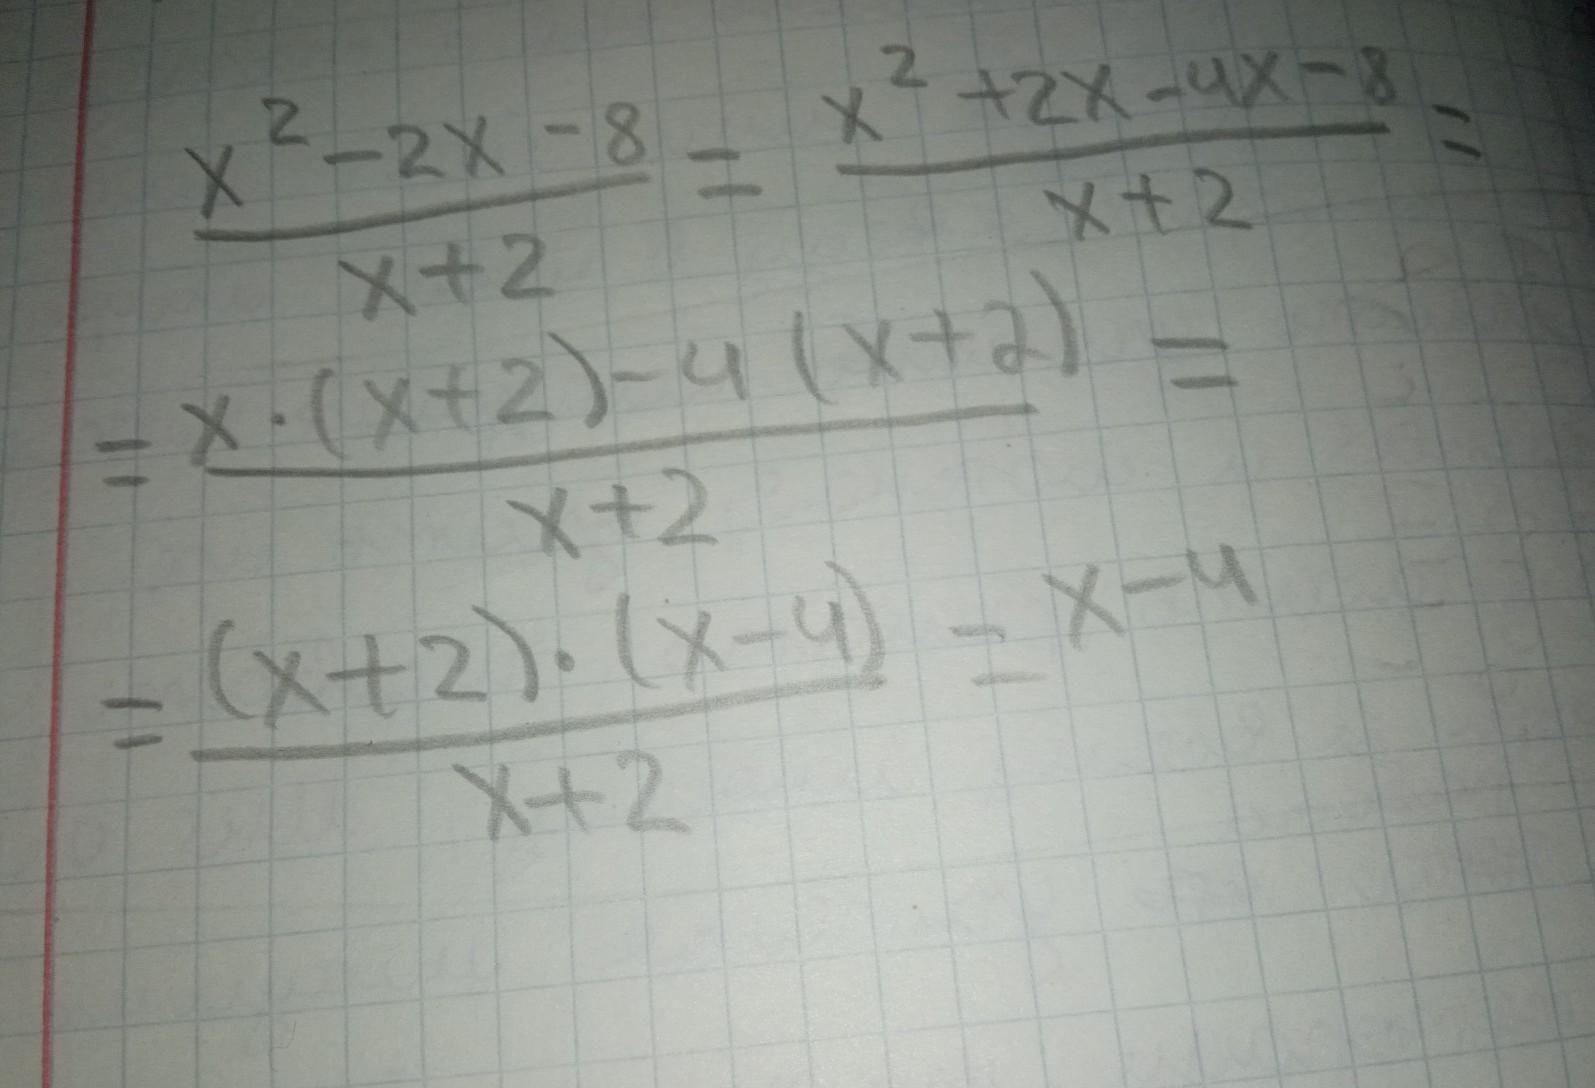 (x² - 2x - 8)/(x + 2) = (x² + 2x - 4x - 8)/(x + 2) =
= (x · (x + 2) - 4 (x + 2))/(x + 2) =
= ((x + 2) · (x - 4))/(x + 2) = x - 4